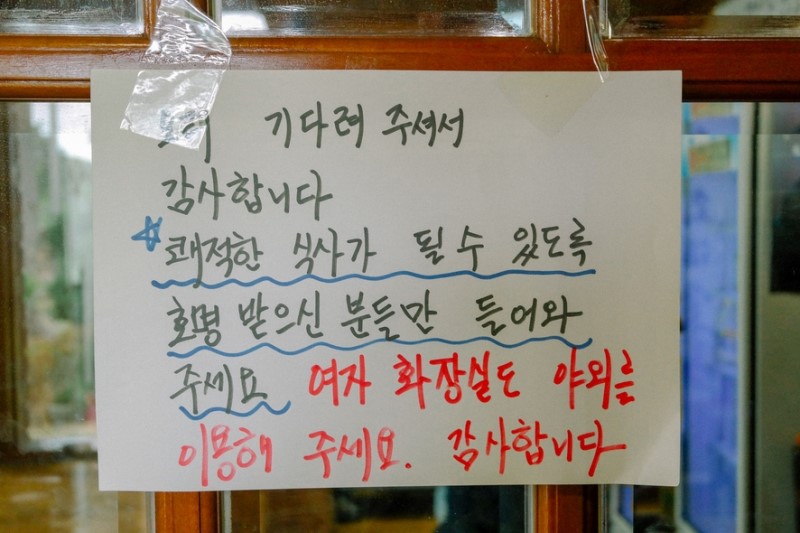 기다려 주셔서
감사합니다
쾌적한 식사가 될 수 있도록
호명 받으신 분들만 들어와
주세요 여자 화장실도 야외를
이용해 주세요. 감사합니다